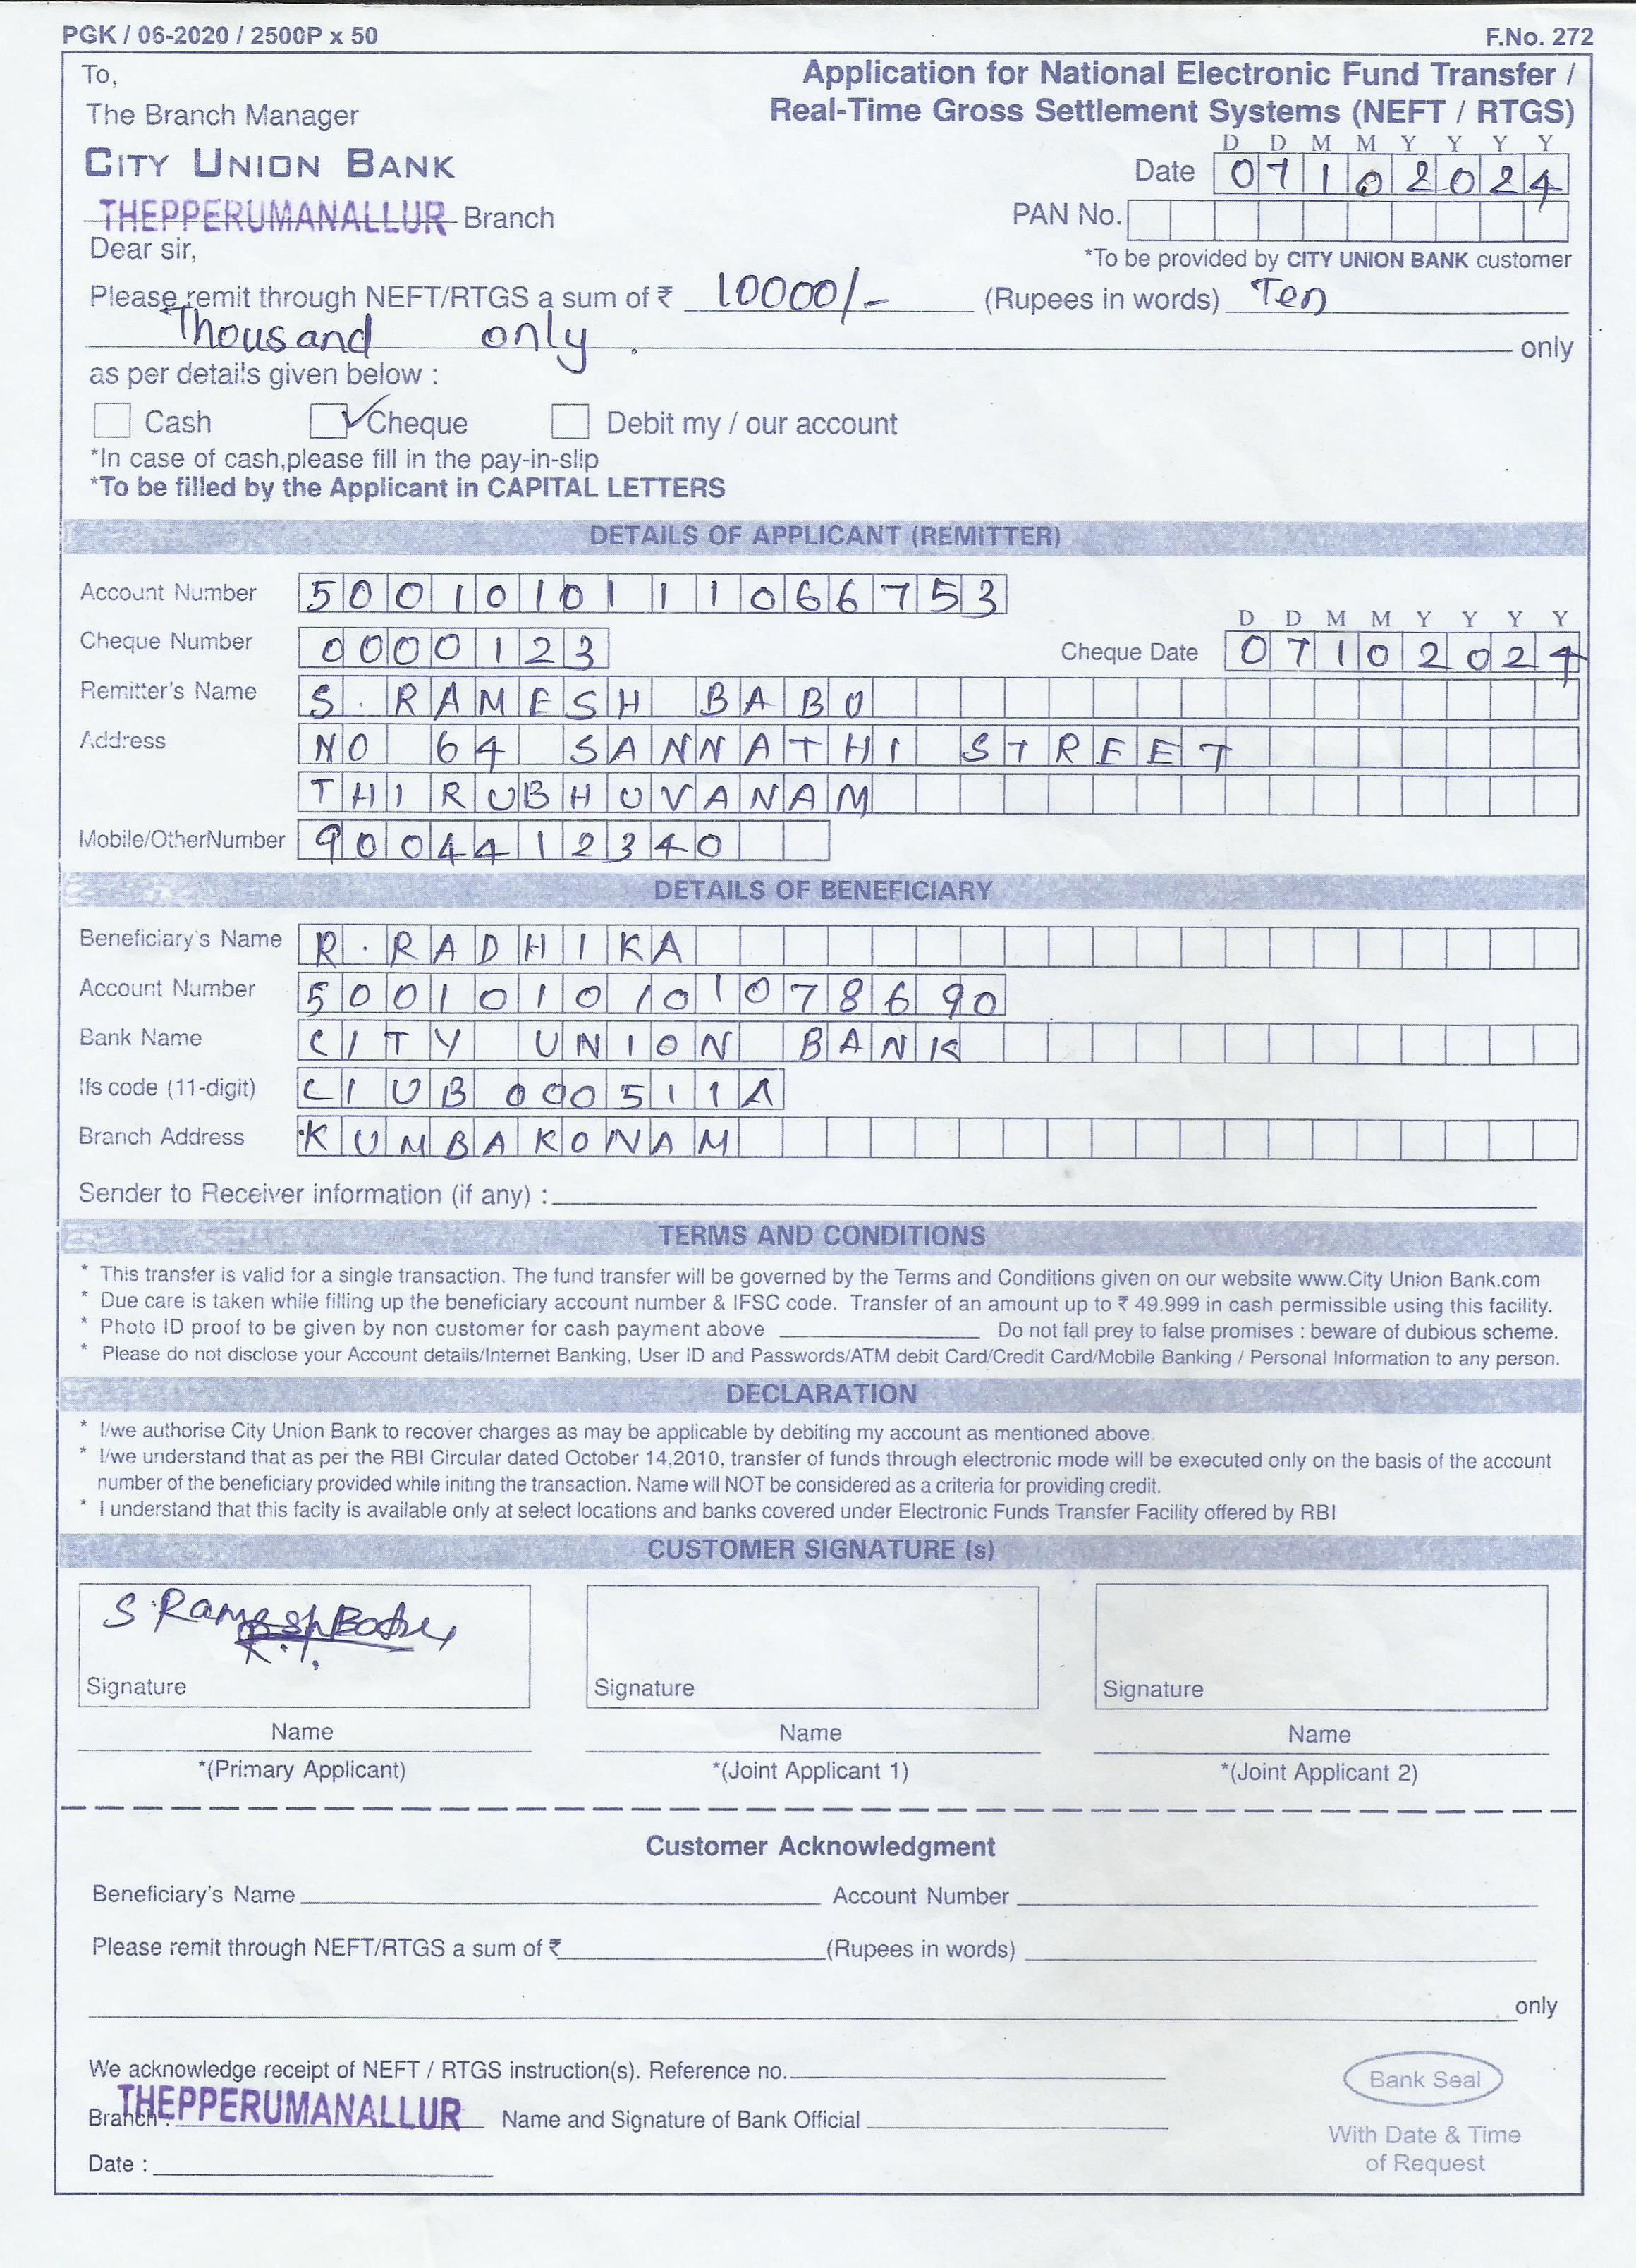 PGK / 06-2020 / 2500P x 50 F.No. 272
To, Application for National Electronic Fund Transfer /
The Branch Manager Real-Time Gross Settlement Systems (NEFT / RTGS)
D D M M Y Y Y Y
CITY UNION BANK Date 07102024
THEPPERUMANALLUR Branch PAN No.
Dear sir, *To be provided by CITY UNION BANK customer
Please remit through NEFT/RTGS a sum of ₹ 10000/- (Rupees in words) Ten
Thousand only. only
as per details given below :
Cash Cheque Debit my / our account
*In case of cash,please fill in the pay-in-slip
*To be filled by the Applicant in CAPITAL LETTERS
DETAILS OF APPLICANT (REMITTER)
Account Number 5001010111066753
D D M M Y Y Y Y
Cheque Number 0000123 Cheque Date 07102024
Remitter's Name S. RAMESH BABU
Address NO 64 SANNATHI STREET
THIRUBHUVANAM
Mobile/OtherNumber 9004412340
DETAILS OF BENEFICIARY
Beneficiary's Name R. RADHIKA
Account Number 5001010101078690
Bank Name CITY UNION BANK
Ifs code (11-digit) CIUB000511A
Branch Address KUMBAKONAM
Sender to Receiver information (if any) :
TERMS AND CONDITIONS
* This transfer is valid for a single transaction. The fund transfer will be governed by the Terms and Conditions given on our website www.City Union Bank.com
* Due care is taken while filling up the beneficiary account number & IFSC code. Transfer of an amount up to ₹ 49.999 in cash permissible using this facility.
* Photo ID proof to be given by non customer for cash payment above Do not fall prey to false promises : beware of dubious scheme.
* Please do not disclose your Account details/Internet Banking, User ID and Passwords/ATM debit Card/Credit Card/Mobile Banking / Personal Information to any person.
DECLARATION
* I/we authorise City Union Bank to recover charges as may be applicable by debiting my account as mentioned above.
* I/we understand that as per the RBI Circular dated October 14,2010, transfer of funds through electronic mode will be executed only on the basis of the account
number of the beneficiary provided while initing the transaction. Name will NOT be considered as a criteria for providing credit.
* I understand that this facity is available only at select locations and banks covered under Electronic Funds Transfer Facility offered by RBI
CUSTOMER SIGNATURE (s)
S. Ramesh Babu
Signature Signature Signature
Name Name Name
*(Primary Applicant) *(Joint Applicant 1) *(Joint Applicant 2)
Customer Acknowledgment
Beneficiary's Name Account Number
Please remit through NEFT/RTGS a sum of ₹ (Rupees in words)
only
We acknowledge receipt of NEFT / RTGS instruction(s). Reference no. Bank Seal
Branch : THEPPERUMANALLUR Name and Signature of Bank Official
With Date & Time
Date : of Request